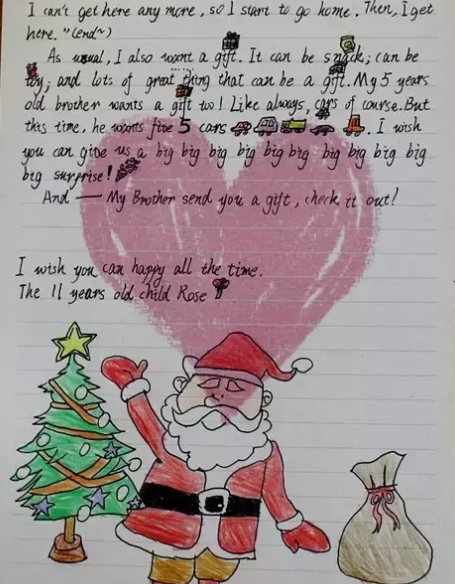 I can't get here any more, so I start to go home. Then, I get
here." (end~)
As usual, I also want a gift. It can be snack; can be
toy; and lots of great thing that can be a gift. My 5 years
old brother wants a gift too! Like always, cars of course. But
this time, he wants five 5 cars. I wish
you can give us a big big big big big big big big big big
big surprise!
And — My Brother send you a gift, check it out!
I wish you can happy all the time.
The 11 years old child Rose